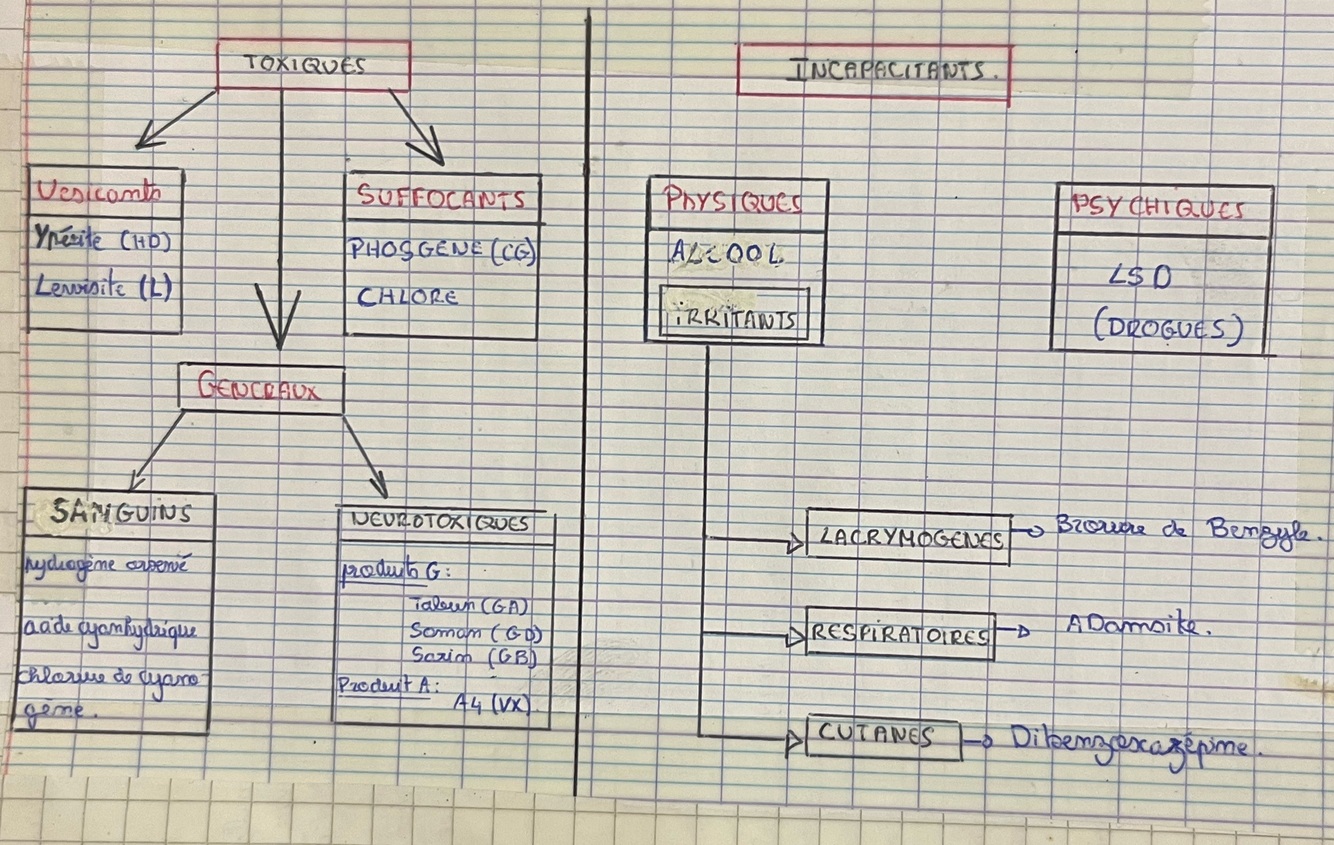 TOXIQUES
Vesicants
Ypérite (HD)
Lewisite (L)
SUFFOCANTS
PHOSGENE (CG)
CHLORE
GENERAUX
SANGUINS
hydrogène arsenié
acide cyanhydrique
chlorure de cyano
gène.
NEUROTOXIQUES
produits G:
Tabun (GA)
Soman (GD)
Sarin (GB)
Produit A:
A4 (VX)
INCAPACITANTS.
PHYSIQUES
ALCOOL
iRRITANTS
PSYCHIQUES
LSD
(DROGUES)
LACRYMOGENES
Bromure de Benzyle.
RESPIRATOIRES
ADamsite.
CUTANES
Dibenzoxazépine.